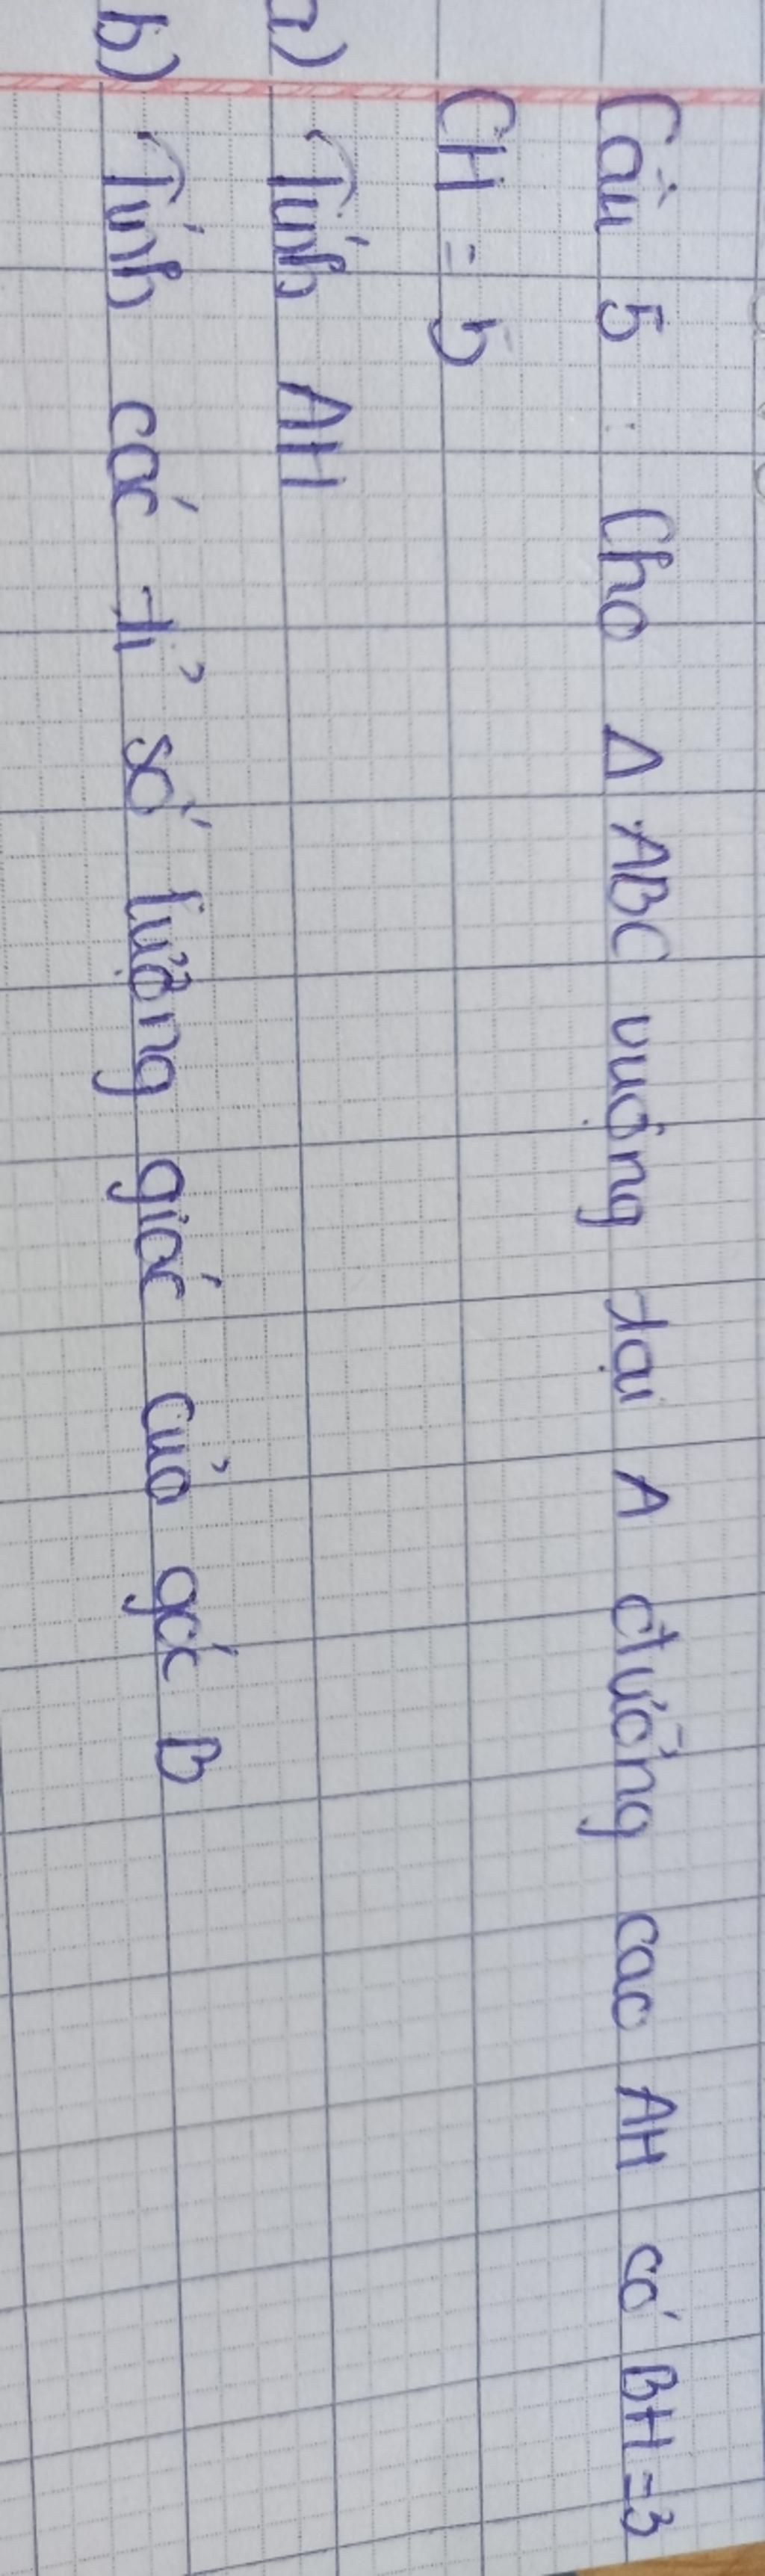 Câu 5 : Cho Δ ABC vuông tại A đường cao AH có BH = 3
CH = 5
a) Tính AH
b) Tính các tỉ số lượng giác của góc B